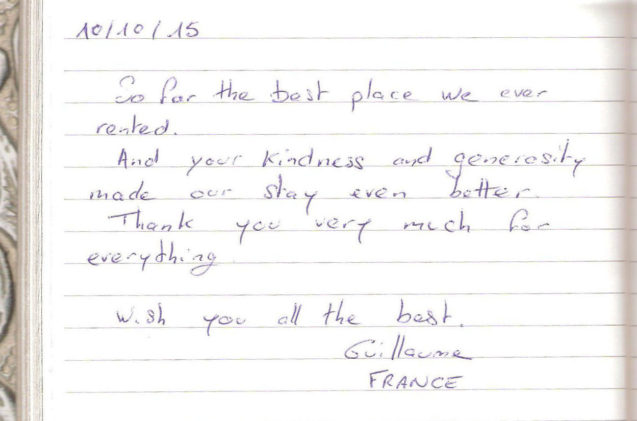 10/10/15
So far the best place we ever
rented.
And your kindness and generosity
made our stay even better.
Thank you very much for
everything
Wish you all the best.
Guillaume
FRANCE